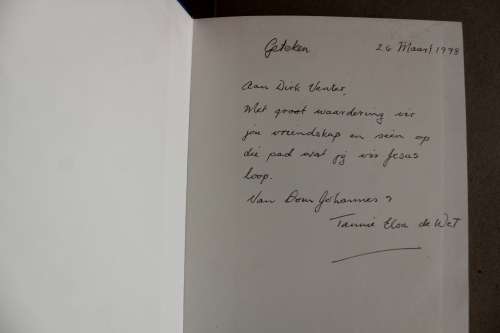 Geteken 26 Maart 1998
Aan Dirk Venter,
Met groot waardering vir
jou vriendskap en seën op
die pad wat jy vir Jesus
loop.
Van Oom Johannes &
Tannie Elsa de Wet